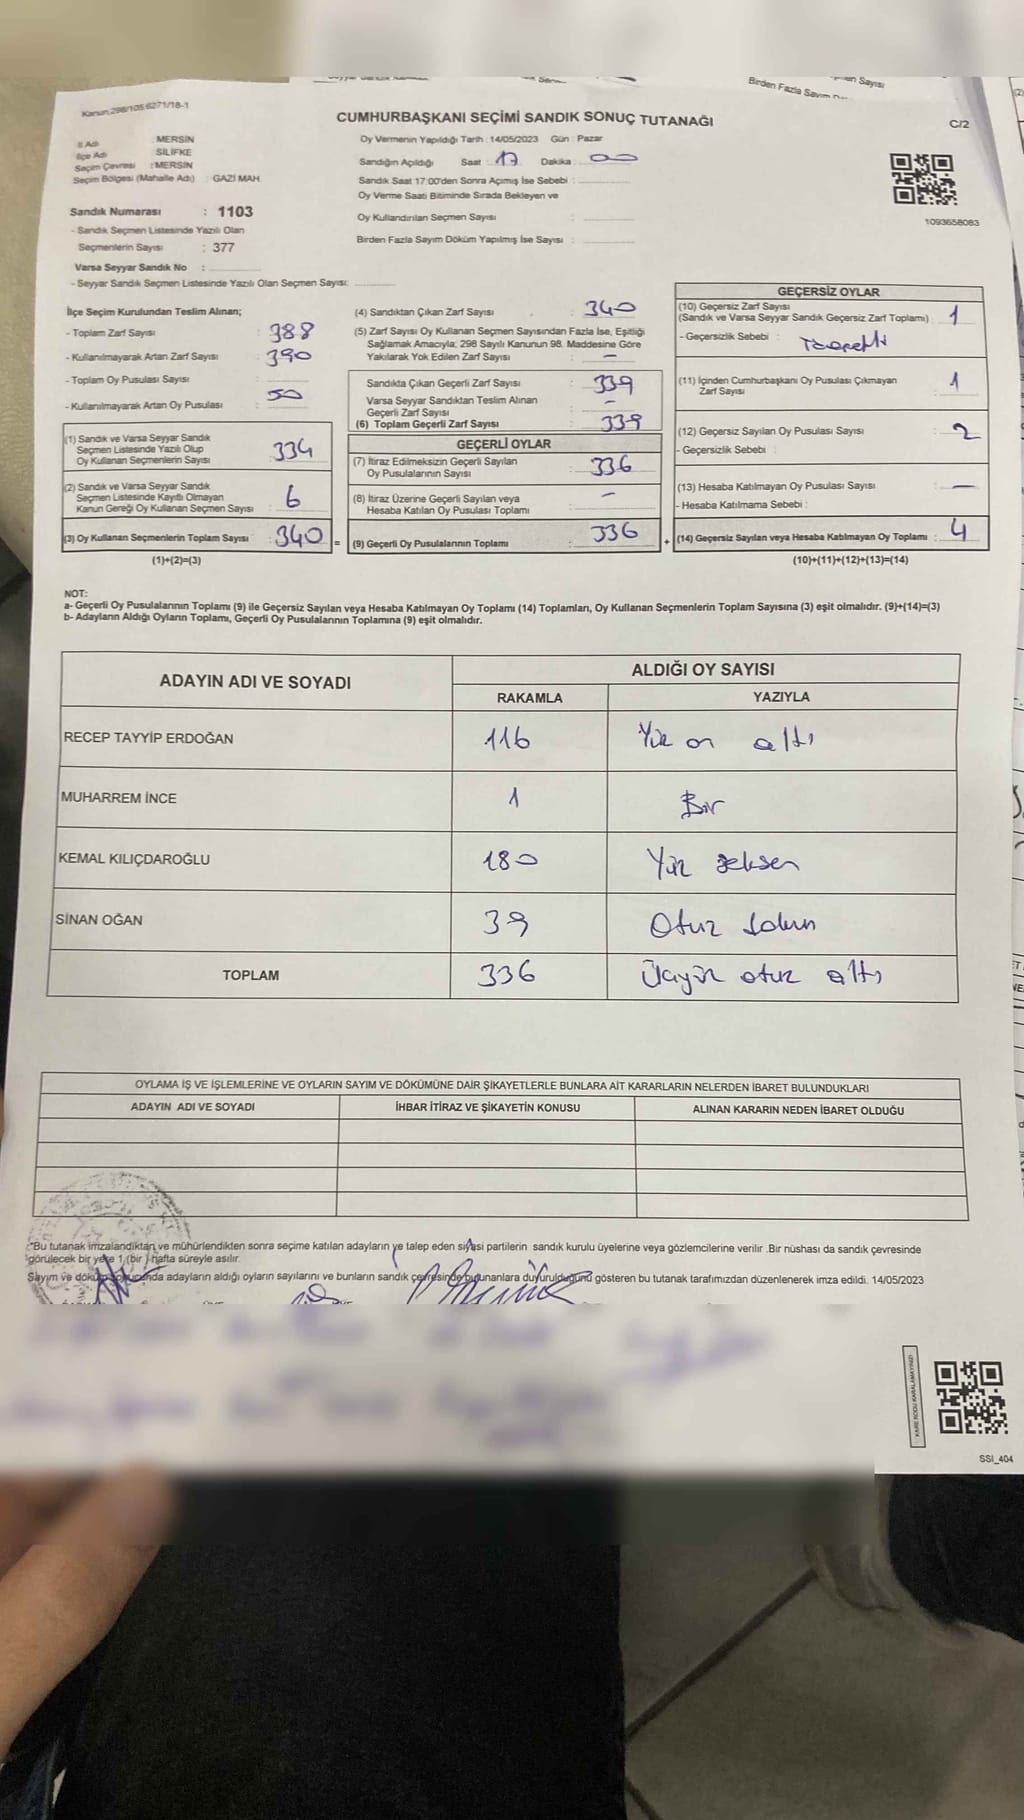 Birden Fazla Sayım
Kanun:298/105.6271/18-1
CUMHURBAŞKANI SEÇİMİ SANDIK SONUÇ TUTANAĞI
C/2
İl Adı : MERSİN
İlçe Adı : SİLİFKE
Seçim Çevresi : MERSİN
Seçim Bölgesi (Mahalle Adı) : GAZİ MAH.
Oy Vermenin Yapıldığı Tarih : 14/05/2023 Gün : Pazar
Sandığın Açıldığı Saat : 17 Dakika : 00
Sandık Saat 17:00'den Sonra Açımış İse Sebebi :
Oy Verme Saati Bitiminde Sırada Bekleyen ve
Oy Kullandırılan Seçmen Sayısı :
Birden Fazla Sayım Döküm Yapılmış İse Sayısı :
1093658083
Sandık Numarası : 1103
- Sandık Seçmen Listesinde Yazılı Olan
Seçmenlerin Sayısı : 377
Varsa Seyyar Sandık No :
- Seyyar Sandık Seçmen Listesinde Yazılı Olan Seçmen Sayısı:
İlçe Seçim Kurulundan Teslim Alınan;
- Toplam Zarf Sayısı : 388
- Kullanılmayarak Artan Zarf Sayısı : 390
- Toplam Oy Pusulası Sayısı :
- Kullanılmayarak Artan Oy Pusulası : 50
(1) Sandık ve Varsa Seyyar Sandık
Seçmen Listesinde Yazılı Olup
Oy Kullanan Seçmenlerin Sayısı : 334
(2) Sandık ve Varsa Seyyar Sandık
Seçmen Listesinde Kayıtlı Olmayan
Kanun Gereği Oy Kullanan Seçmen Sayısı : 6
(3) Oy Kullanan Seçmenlerin Toplam Sayısı : 340 =
(1)+(2)=(3)
(4) Sandıktan Çıkan Zarf Sayısı : 340
(5) Zarf Sayısı Oy Kullanan Seçmen Sayısından Fazla İse, Eşitliği
Sağlamak Amacıyla; 298 Sayılı Kanunun 98. Maddesine Göre
Yakılarak Yok Edilen Zarf Sayısı : —
Sandıkta Çıkan Geçerli Zarf Sayısı : 339
Varsa Seyyar Sandıktan Teslim Alınan
Geçerli Zarf Sayısı : —
(6) Toplam Geçerli Zarf Sayısı : 339
GEÇERLİ OYLAR
(7) İtiraz Edilmeksizin Geçerli Sayılan
Oy Pusulalarının Sayısı : 336
(8) İtiraz Üzerine Geçerli Sayılan veya
Hesaba Katılan Oy Pusulası Toplamı : —
(9) Geçerli Oy Pusulalarının Toplamı : 336 +
GEÇERSİZ OYLAR
(10) Geçersiz Zarf Sayısı
(Sandık ve Varsa Seyyar Sandık Geçersiz Zarf Toplamı) : 1
- Geçersizlik Sebebi :
(11) İçinden Cumhurbaşkanı Oy Pusulası Çıkmayan
Zarf Sayısı : 1
(12) Geçersiz Sayılan Oy Pusulası Sayısı : 2
- Geçersizlik Sebebi :
(13) Hesaba Katılmayan Oy Pusulası Sayısı : —
- Hesaba Katılmama Sebebi :
(14) Geçersiz Sayılan veya Hesaba Katılmayan Oy Toplamı : 4
(10)+(11)+(12)+(13)=(14)
NOT:
a- Geçerli Oy Pusulalarının Toplamı (9) ile Geçersiz Sayılan veya Hesaba Katılmayan Oy Toplamı (14) Toplamları, Oy Kullanan Seçmenlerin Toplam Sayısına (3) eşit olmalıdır. (9)+(14)=(3)
b- Adayların Aldığı Oyların Toplamı, Geçerli Oy Pusulalarının Toplamına (9) eşit olmalıdır.
ADAYIN ADI VE SOYADI ALDIĞI OY SAYISI
RAKAMLA YAZIYLA
RECEP TAYYİP ERDOĞAN 116 Yüz on altı
MUHARREM İNCE 1 Bir
KEMAL KILIÇDAROĞLU 180 Yüz seksen
SİNAN OĞAN 39 Otuz dokuz
TOPLAM 336 Üçyüz otuz altı
OYLAMA İŞ VE İŞLEMLERİNE VE OYLARIN SAYIM VE DÖKÜMÜNE DAİR ŞİKAYETLERLE BUNLARA AİT KARARLARIN NELERDEN İBARET BULUNDUKLARI
ADAYIN ADI VE SOYADI İHBAR İTİRAZ VE ŞİKAYETİN KONUSU ALINAN KARARIN NEDEN İBARET OLDUĞU
"Bu tutanak imzalandıktan ve mühürlendikten sonra seçime katılan adayların ve talep eden siyasi partilerin sandık kurulu üyelerine veya gözlemcilerine verilir .Bir nüshası da sandık çevresinde
görülecek bir yere 1 (bir ) hafta süreyle asılır.
Sayım ve döküm sonucunda adayların aldığı oyların sayılarını ve bunların sandık çevresinde bulunanlara duyurulduğunu gösteren bu tutanak tarafımızdan düzenlenerek imza edildi. 14/05/2023
KARE KODU KARALAMAYINIZ!
SSI_404